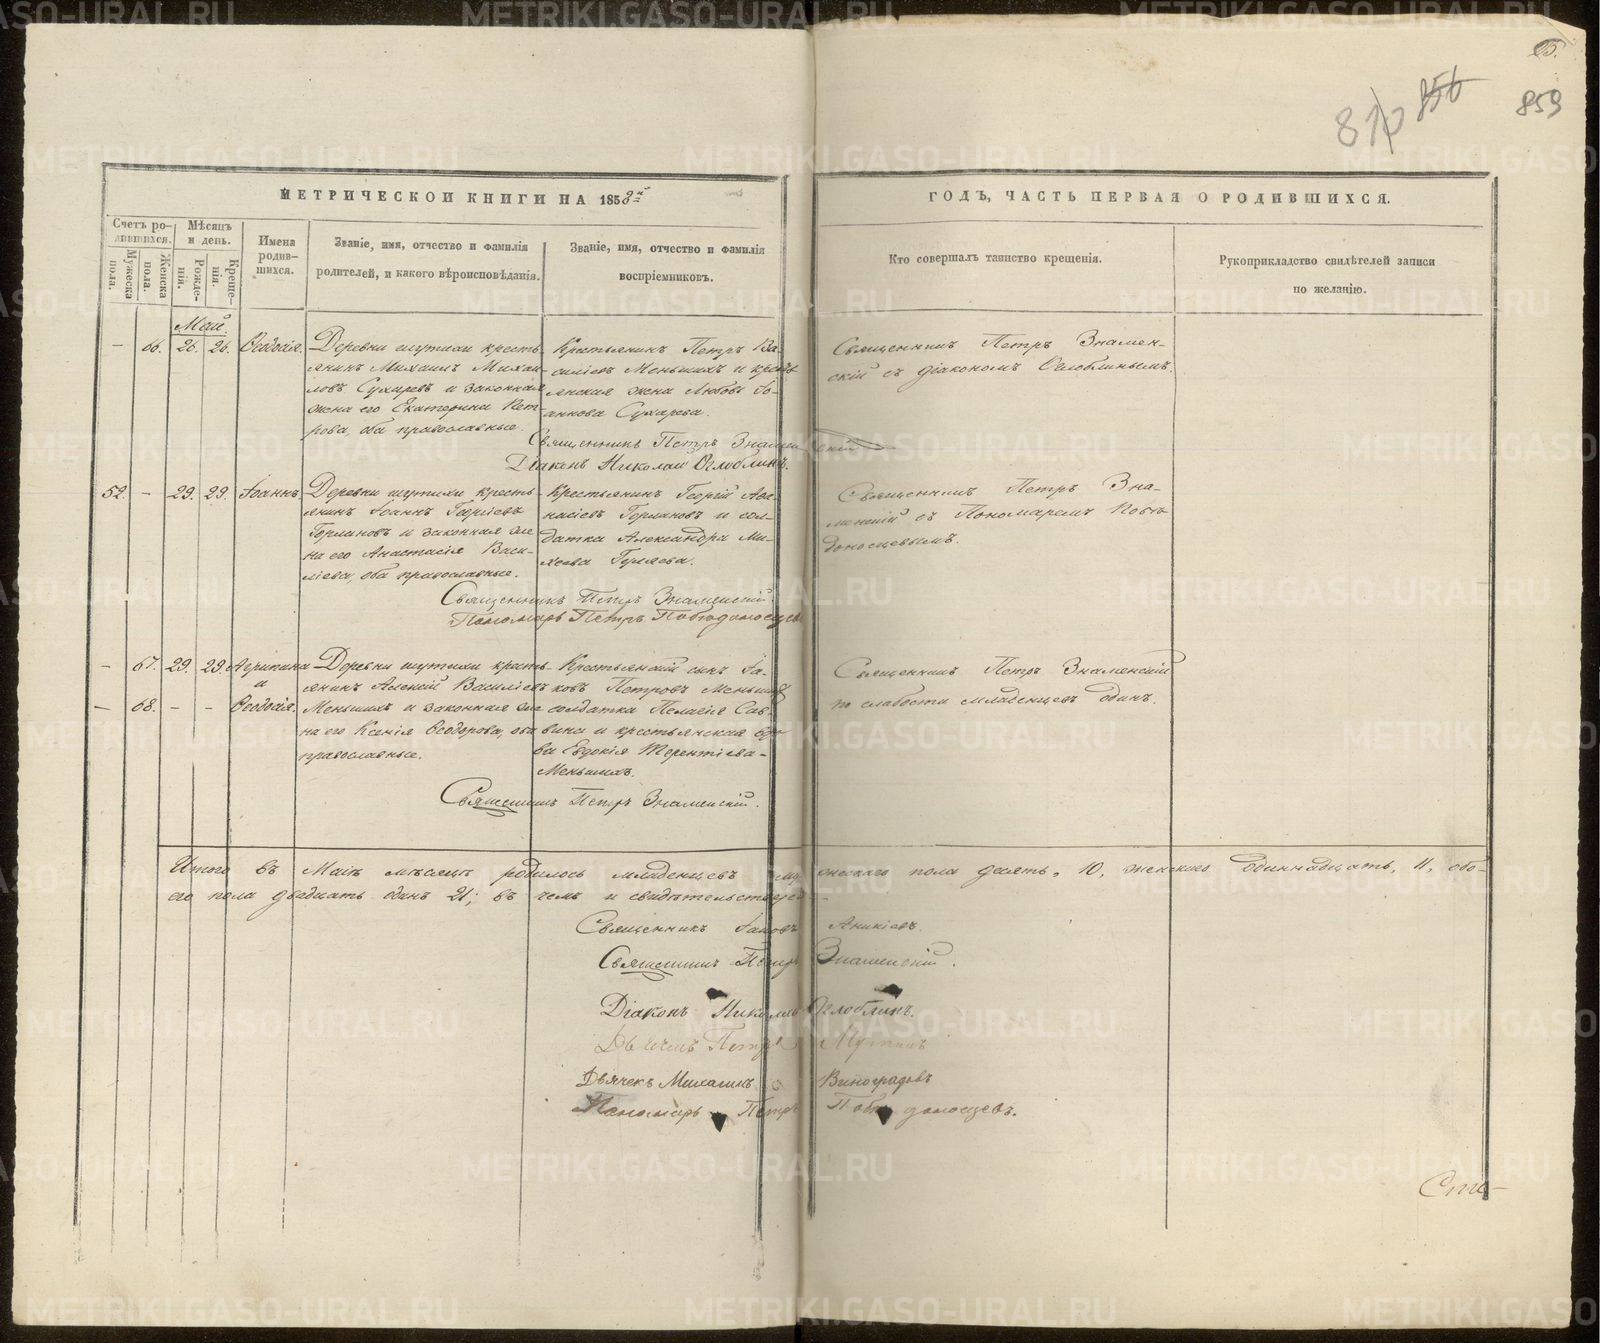 25.
810 856 859
МЕТРИЧЕСКОЙ КНИГИ НА 1858й
ГОДЪ, ЧАСТЬ ПЕРВАЯ О РОДИВШИХСЯ.
Счетъ родившихся.
Мужеска пола.
Женска пола.
Мѣсяцъ и день.
Рожденія.
Крещенія.
Имена родившихся.
Званіе, имя, отчество и фамилія
родителей, и какого вѣроисповѣданія.
Званіе, имя, отчество и фамилія
воспріемниковъ.
Кто совершалъ таинство крещенія.
Рукоприкладство свидѣтелей записи
по желанію.
Май.
— 66. 26. 26. Ѳеодосія.
Деревни шутихи кресть-
янинъ Михаилъ Михаи-
ловъ Сухаревъ и законная
жена его Екатерина Пет-
рова, оба православные.
Крестьянинъ Петръ Ва-
силіевъ Меньшихъ и кресть
янская жена Любовь Іо-
аннова Сухарева.
Священникъ Петръ Знамен-
скій съ діакономъ Оглоблинымъ.
Священникъ Петръ Знаменскій
Діаконъ Николай Оглоблинъ.
52. — 29. 29. Іоаннъ.
Деревни шутихи кресть-
янинъ Іоаннъ Георгіевъ
и законная же
на его Анастасія Васи-
ліева, оба православные.
Крестьянинъ Георгій Аѳа-
насіевъ и сол-
датка Александра Ми-
хеева Гуляева.
Священникъ Петръ Зна-
менскій съ Пономаремъ Побѣ
доносцевымъ.
Священникъ Петръ Знаменскій
Пономарь Петръ Побѣдоносцевъ
— 67. 29. 29. Агрипина
и
— 68. — — Ѳеодосія.
Деревни шутихи кресть-
янинъ Алексій Василіевъ
Меньшихъ и законная же
на его Ксенія Ѳеодорова, оба
православные.
Крестьянскій сынъ Іа-
ковъ Петровъ Меньших
солдатка Пелагія Сав-
вина и крестьянская вдо
ва Евдокія Терентіева
Меньшихъ.
Священникъ Петръ Знаменскій
по слабости младенцевъ одинъ.
Священникъ Петръ Знаменскій.
Итого въ Маіѣ мѣсяцѣ родилось младенцевъ мужескаго пола десять, 10, женскаго одиннадцать, 11, обо-
его пола двадцать одинъ 21; въ чемъ и свидѣтельствуемъ
Священникъ Іаковъ Аникіевъ.
Священникъ Петръ Знаменскій.
Діаконъ Николай Оглоблинъ.
Дьячекъ Петръ
Дьячекъ Михаилъ Виноградовъ
Пономарь Петръ Побѣдоносцевъ.